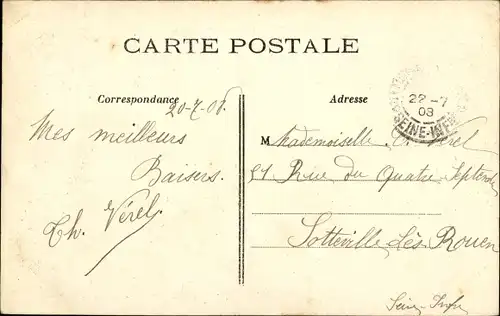 CARTE POSTALE
Correspondance
20-7-08.
Mes meilleurs
Baisers.
Th. Vérel
Adresse
22 -7
08
SEINE-INFRE
M Mademoiselle Vérel
51 Rue du Quatre Septembre
Sotteville Lès Rouen
Seine-Infre